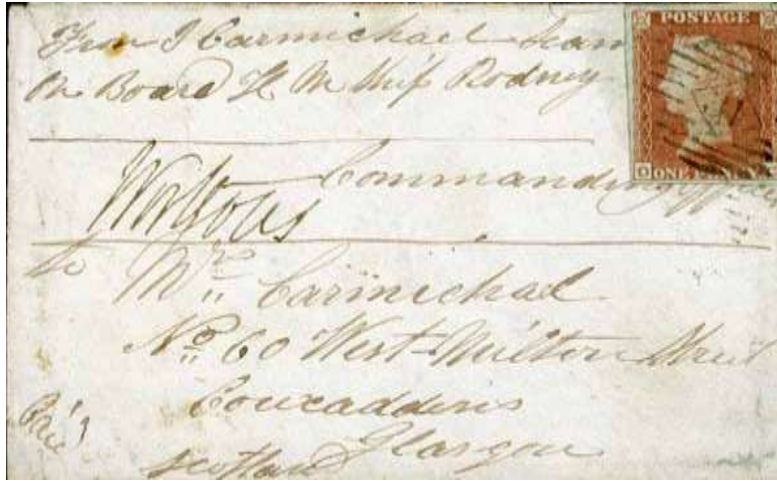 From J Carmichael Seam
On Board H M Ship Rodney
POSTAGE
ONE PENNY
Commanding
to Mrs Carmichael
No 60 West Milton Street
Cowcaddens
Glasgow
Scotland